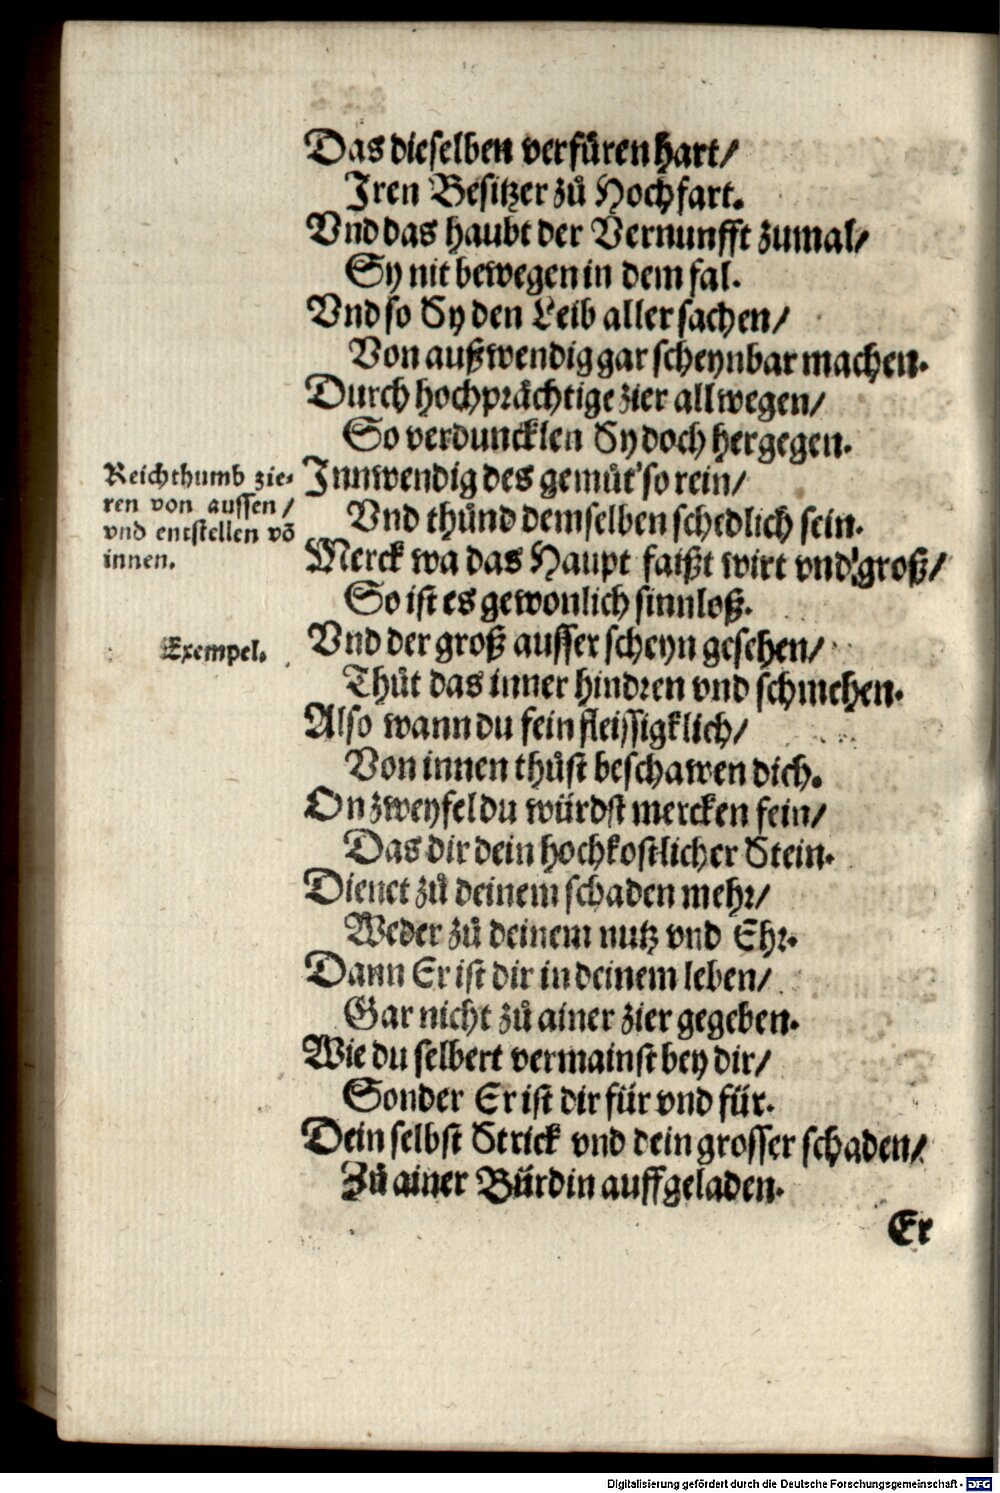 Das dieselben verfüren hart/
Iren Besitzer zů Hochfart.
Vnd das haubt der Vernunfft zumal/
Sy nit bewegen in dem fal.
Vnd so Sy den Leib aller sachen/
Von außwendig gar scheynbar machen.
Durch hochprächtige zier allwegen/
So verduncklen Sy doch hergegen.
Reichthumb zie-
ren von aussen/
vnd entstellen vō
innen.
Innwendig des gemüt' so rein/
Vnd thůnd demselben schedlich sein.
Merck wa das Haupt faißt wirt vnd groß/
So ist es gewonlich sinnloß.
Exempel.
Vnd der groß ausser scheyn gesehen/
Thůt das inner hindren vnd schmehen.
Also wann du fein fleissigklich/
Von innen thůst beschawen dich.
On zweyfel du würdst mercken fein/
Das dir dein hochkostlicher Stein.
Dienet zů deinem schaden mehr/
Weder zů deinem nutz vnd Ehr.
Dann Er ist dir in deinem leben/
Gar nicht zů ainer zier gegeben.
Wie du selbert vermainst bey dir/
Sonder Er ist dir für vnd für.
Dein selbst Strick vnd dein grosser schaden/
Zů ainer Bürdin auffgeladen.
Er
Digitalisierung gefördert durch die Deutsche Forschungsgemeinschaft - DFG